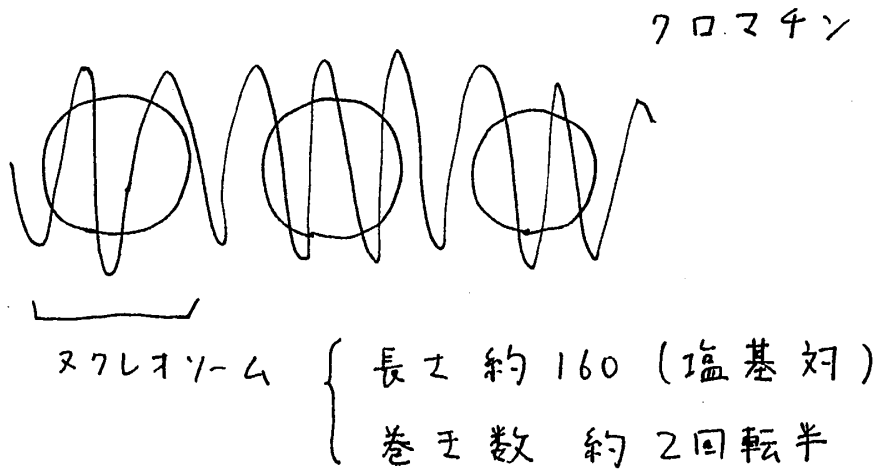 クロマチン
ヌクレオソーム
長さ 約 160 (塩基対)
巻き数 約 2回転半